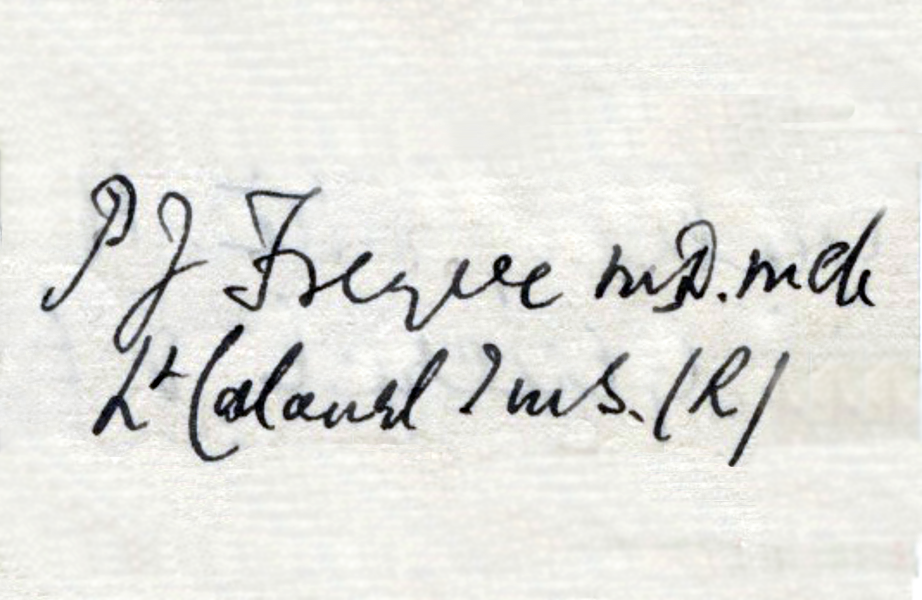 P J Freyer M.D. M Ch
Lt Colonel I M S. (R)